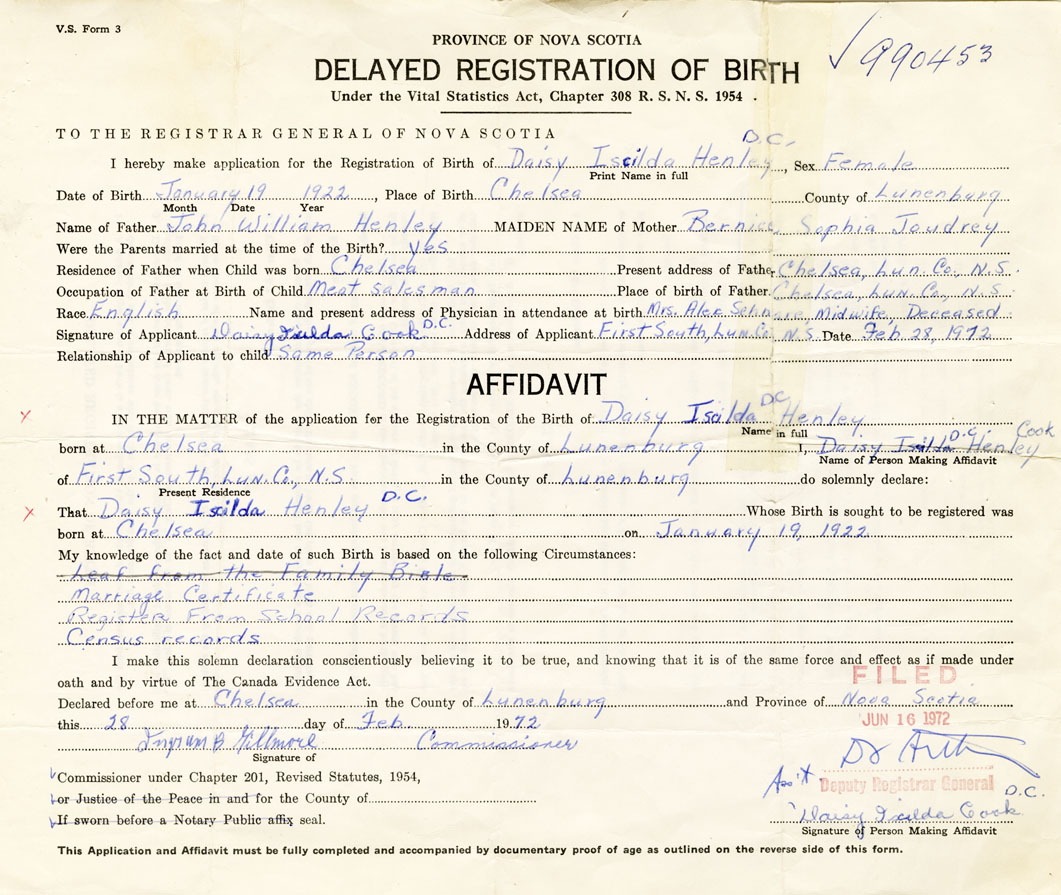 V.S. Form 3
PROVINCE OF NOVA SCOTIA
✓ 990453
DELAYED REGISTRATION OF BIRTH
Under the Vital Statistics Act, Chapter 308 R. S. N. S. 1954 .
TO THE REGISTRAR GENERAL OF NOVA SCOTIA
D.C.
I hereby make application for the Registration of Birth of Daisy Iscilda Henley, Sex Female
Print Name in full
Date of Birth January 19 1922, Place of Birth Chelsea County of Lunenburg
Month Date Year
Name of Father John William Henley MAIDEN NAME of Mother Bernice Sophia Joudrey
Were the Parents married at the time of the Birth? Yes
Residence of Father when Child was born Chelsea Present address of Father Chelsea, Lun. Co., N.S.
Occupation of Father at Birth of Child Meat Salesman Place of birth of Father Chelsea, Lun. Co., N.S.
Race English Name and present address of Physician in attendance at birth Mrs. Alex Sehnare, Midwife, Deceased
Signature of Applicant Daisy Isilda Cook D.C. Address of Applicant First South, Lun. Co. N.S. Date Feb 28, 1972
Relationship of Applicant to child Same Person
AFFIDAVIT
D.C.
x IN THE MATTER of the application for the Registration of the Birth of Daisy Iscilda Henley
Name in full
D.C. Cook
born at Chelsea in the County of Lunenburg I, Daisy Isilda Henley
Name of Person Making Affidavit
of First South, Lun. Co., N.S. in the County of Lunenburg do solemnly declare:
Present Residence D.C.
x That Daisy Isilda Henley Whose Birth is sought to be registered was
born at Chelsea on January 19, 1922
My knowledge of the fact and date of such Birth is based on the following Circumstances:
Leaf from the Family Bible
Marriage Certificate
Registers From School Records
Census records
I make this solemn declaration conscientiously believing it to be true, and knowing that it is of the same force and effect as if made under
oath and by virtue of The Canada Evidence Act.
FILED
Declared before me at Chelsea in the County of Lunenburg and Province of Nova Scotia
this 28 day of Feb 1972
JUN 16 1972
Ingram B Gillmore Commissioner
Signature of
Commissioner under Chapter 201, Revised Statutes, 1954,
Ass't Deputy Registrar General
or Justice of the Peace in and for the County of
D.C.
Daisy Isilda Cook
If sworn before a Notary Public affix seal.
Signature of Person Making Affidavit
This Application and Affidavit must be fully completed and accompanied by documentary proof of age as outlined on the reverse side of this form.